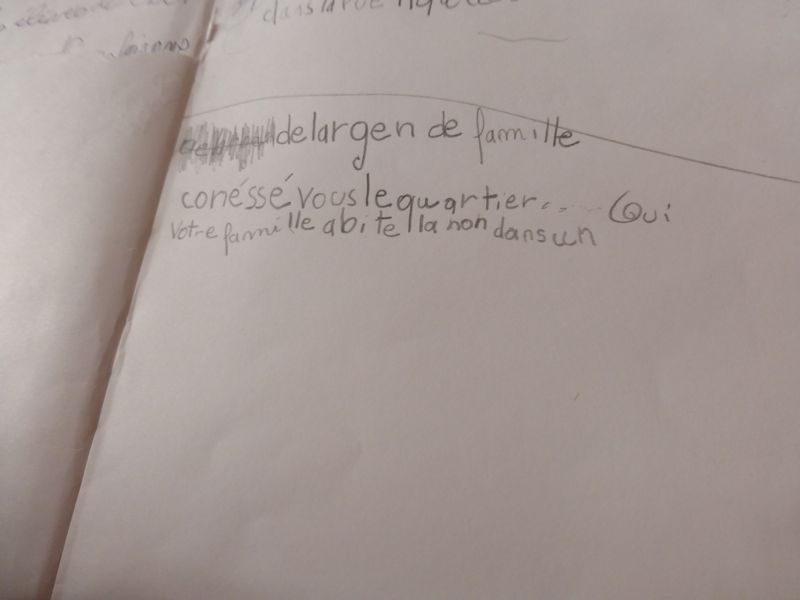 dans la rue
delargen de famille
conéssé vous le quartier...... Oui
votre famille abite lla non dans un